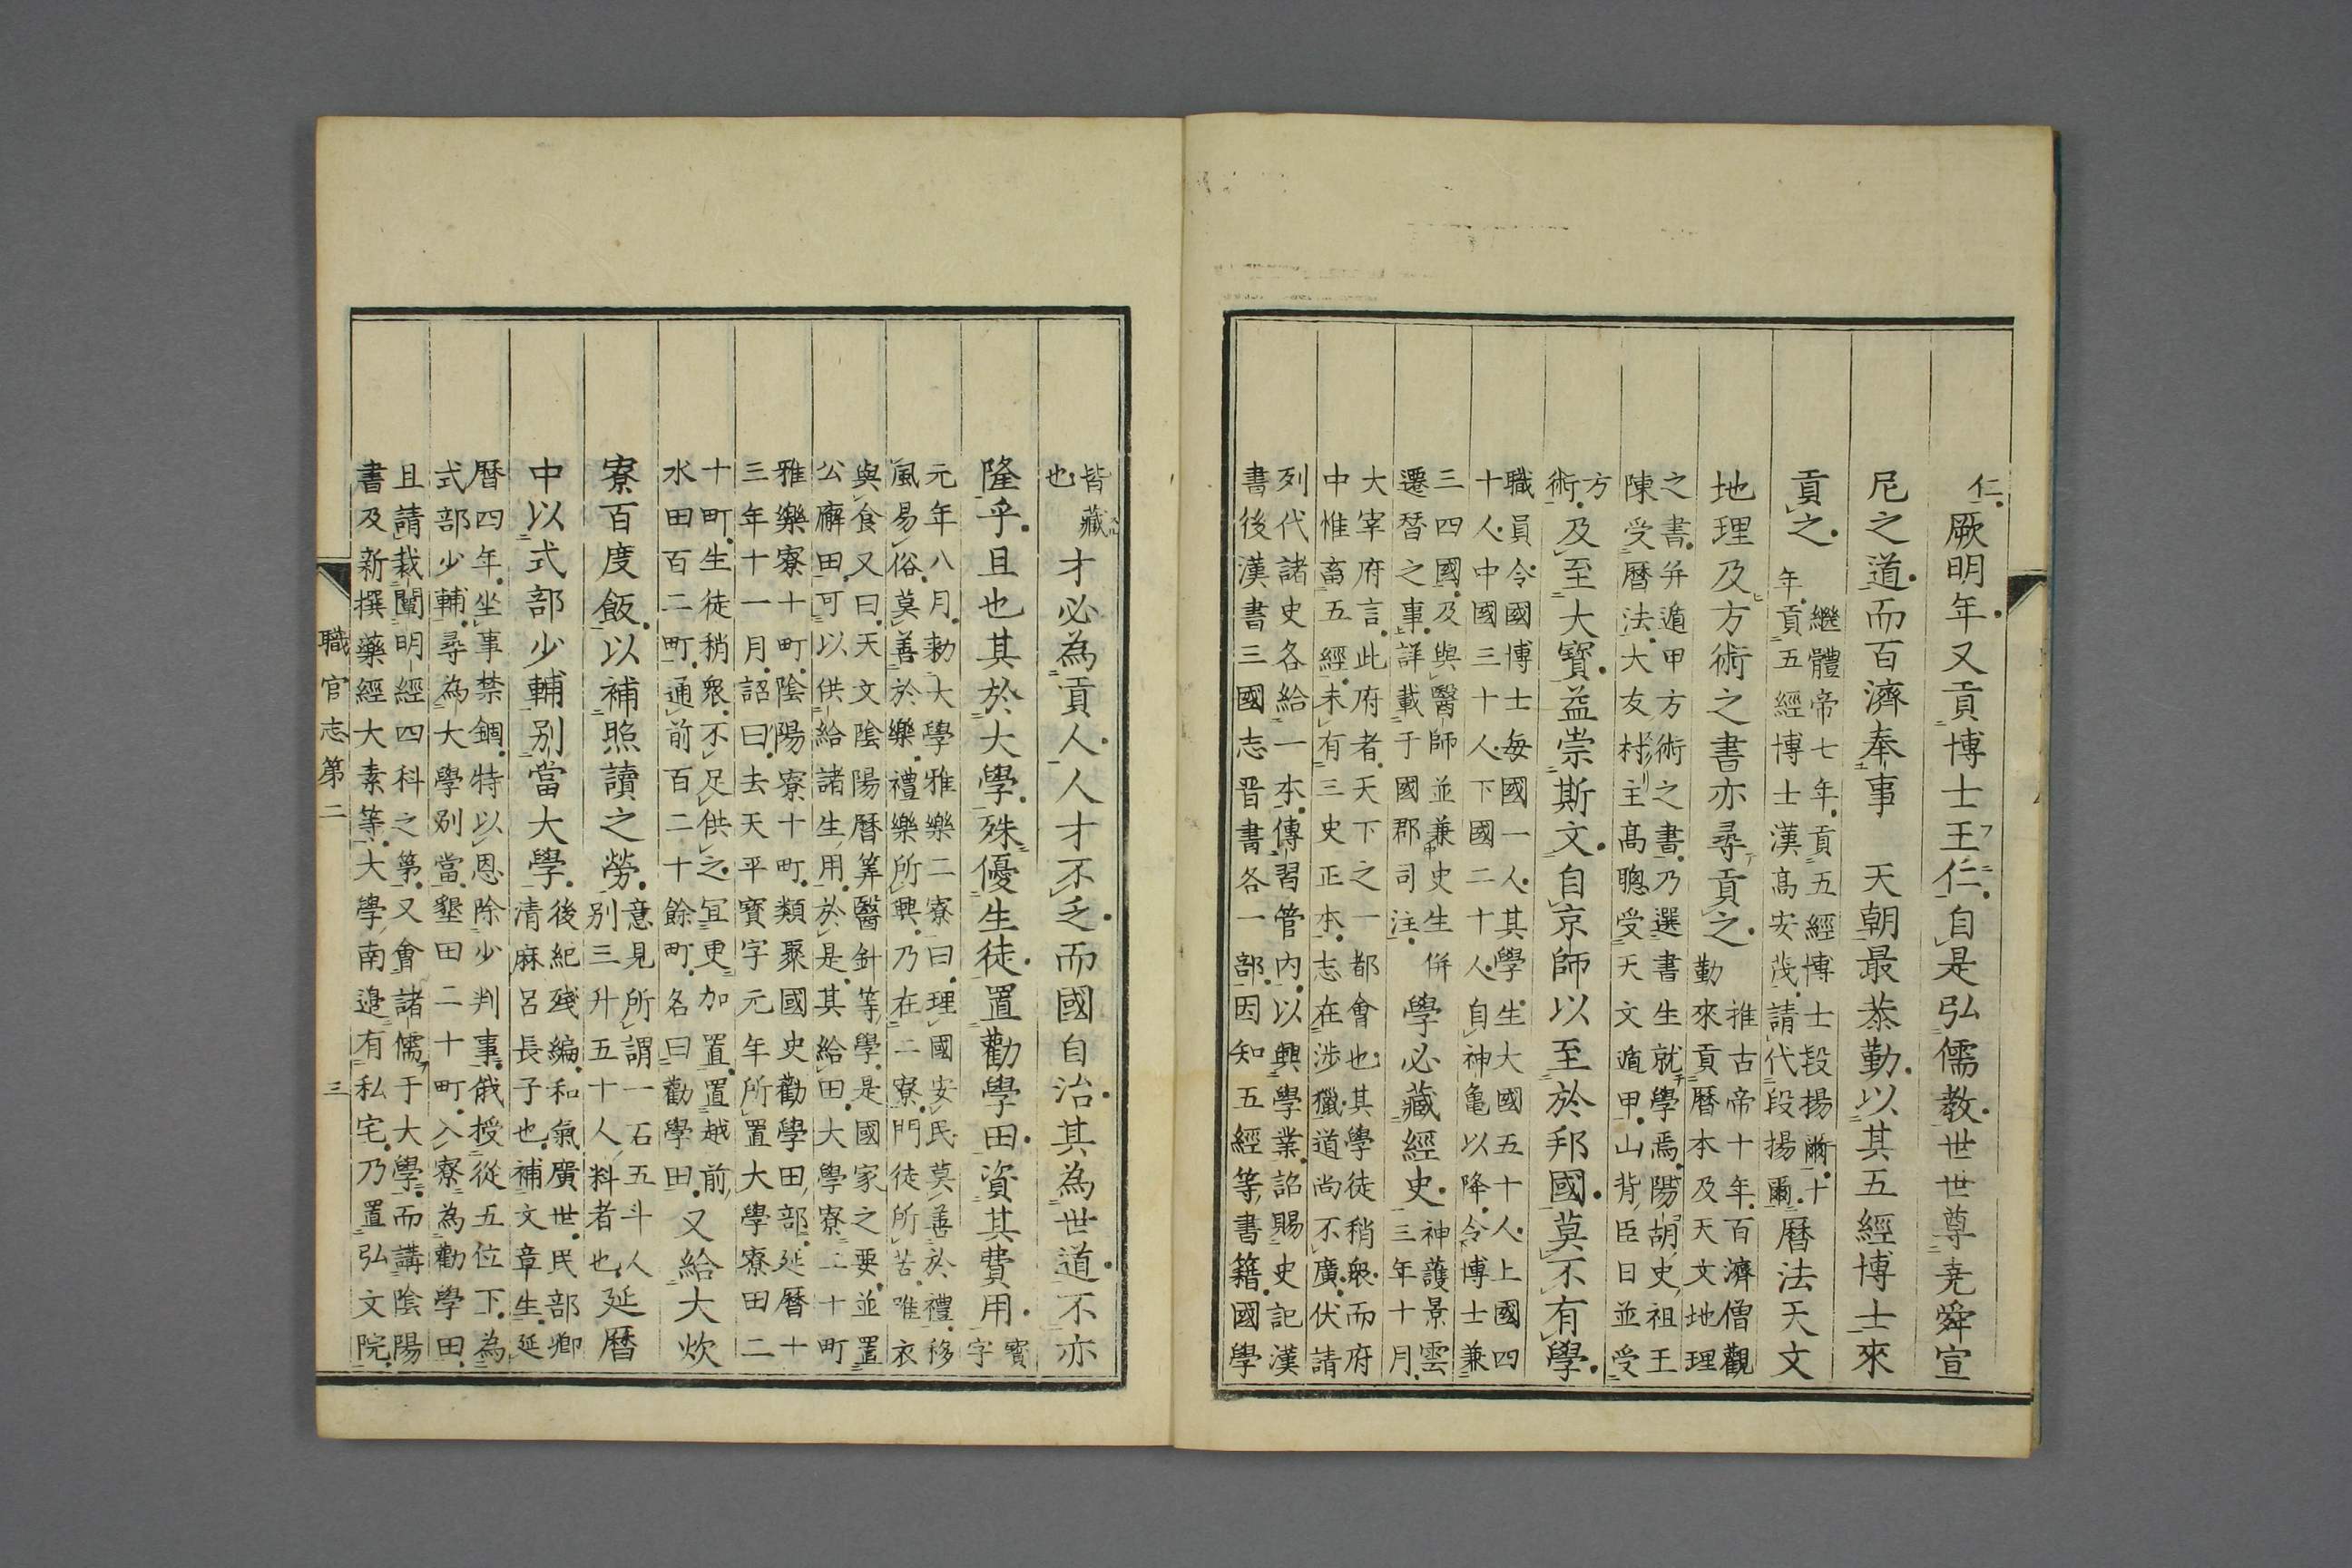 仁厥明年又貢博士王仁自是弘儒教世世尊堯舜宣
尼之道而百濟奉事　天朝最恭勤以其五經博士來
貢之
繼體帝七年貢五經博士段揚爾十
年貢五經博士漢高安茂請代段揚爾
曆法天文
地理及方術之書亦尋貢之
推古帝十年百濟僧觀
勤來貢曆本及天文地理
之書并遁甲方術之書乃選書生就學焉陽胡史祖王
陳受曆法大友村主高聰受天文遁甲山背臣日並受
方
術
及至大寶益崇斯文自京師以至於邦國莫不有學
職員令國博士每國一人其學生大國五十人上國四
十人中國三十人下國二十人自神亀以降令博士兼
三四國及與醫師並兼史生併
遷替之事詳載于國郡司注
學必藏經史
神護景雲
三年十月
大宰府言此府者天下之一都會也其學徒稍衆而府
中惟畜五經未有三史正本志在涉獵道尚不廣伏請
列代諸史各給一本傳習管內以興學業詔賜史記漢
書後漢書三國志晋書各一部因知五經等書籍國學
皆藏
也
才必為貢人人才不乏而國自治其為世道不亦
隆乎且也其於大學殊優生徒置勸學田資其費用
寶
字
元年八月勑大學雅樂二寮曰理國安民莫善於禮移
風易俗莫善於樂禮樂所興乃在二寮門徒所苦唯衣
與食又曰天文陰陽曆筭醫針等學是國家之要並置
公廨田可以供給諸生用於是其給田大學寮二十町
雅樂寮十町陰陽寮十町類聚國史勸學田部延曆十
三年十一月詔曰去天平寶字元年所置大學寮田二
十町生徒稍衆不足供之宜更加置置越前
水田百二町通前百二十餘町名曰勸學田
又給大炊
寮百度飯以補照讀之勞
意見所謂一石五斗人
別三升五十人料者也
延曆
中以式部少輔別當大學
後紀殘編和氣廣世民部卿
清麻呂長子也補文章生延
曆四年坐事禁錮特以恩除少判事俄授從五位下為
式部少輔尋為大學別當墾田二十町入寮為勸學田
且請裁闡明經四科之第又會諸儒于大學而講陰陽
書及新撰藥經大素等大學南邊有私宅乃置弘文院
職官志第二
三